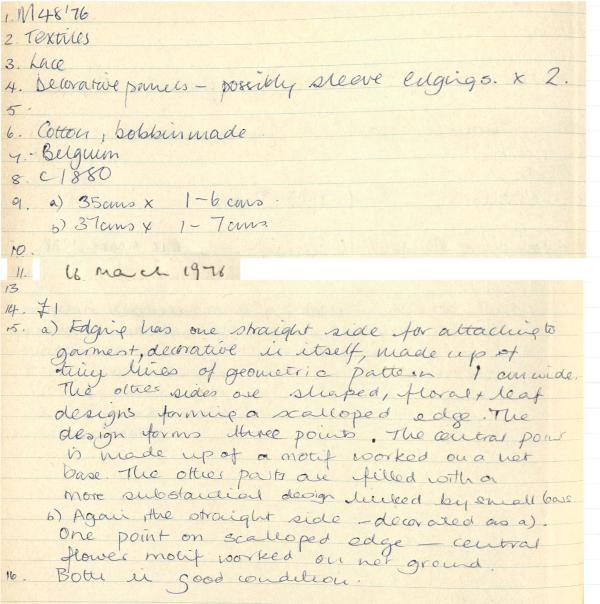 1. M48'76
2. Textiles
3. Lace
4. Decorative panels - possibly sleeve edgings. x 2.
5.
6. Cotton, bobbin made
7. - Belgium
8. c 1880
9. a) 35cms x 1-6 cms.
b) 37cms x 1-7cms.
10.
11. 16 March 1976
13
14. £1
15. a) Edging has one straight side for attaching to
garment, decorative in itself, made up of
tiny lines of geometric pattern 1 cm wide.
The other sides are shaped, floral + leaf
designs forming a scalloped edge. The
design forms three points. The central point
is made up of a motif worked on a net
base. The other parts are filled with a
more substantial design linked by small bars.
b) Again, the straight side - decorated as a).
One point on scalloped edge - central
flower motif worked on net ground.
16. Both in good condition.